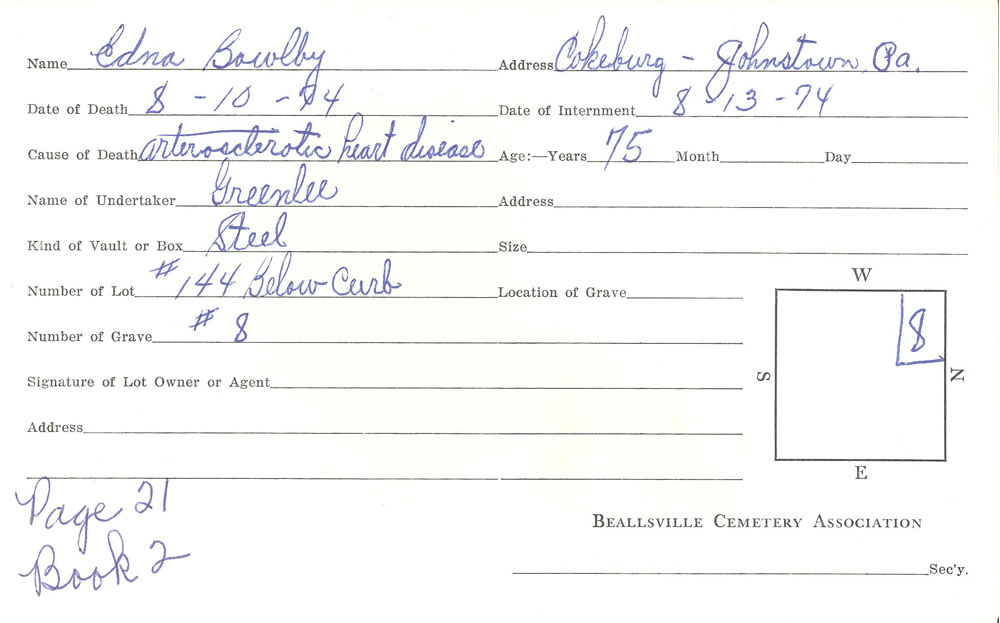 Name Edna Bowlby Address Cokeburg - Johnstown, Pa.
Date of Death 8 - 10 - 74 Date of Internment 8 - 13 - 74
Cause of Death arterosclerotic heart disease Age:—Years 75 Month Day
Name of Undertaker Greenlee Address
Kind of Vault or Box Steel Size
Number of Lot # 144 Below Curb Location of Grave
W
Number of Grave # 8
8
Signature of Lot Owner or Agent
S N
Address
E
Page 21
Book 2
Beallsville Cemetery Association
Sec'y.